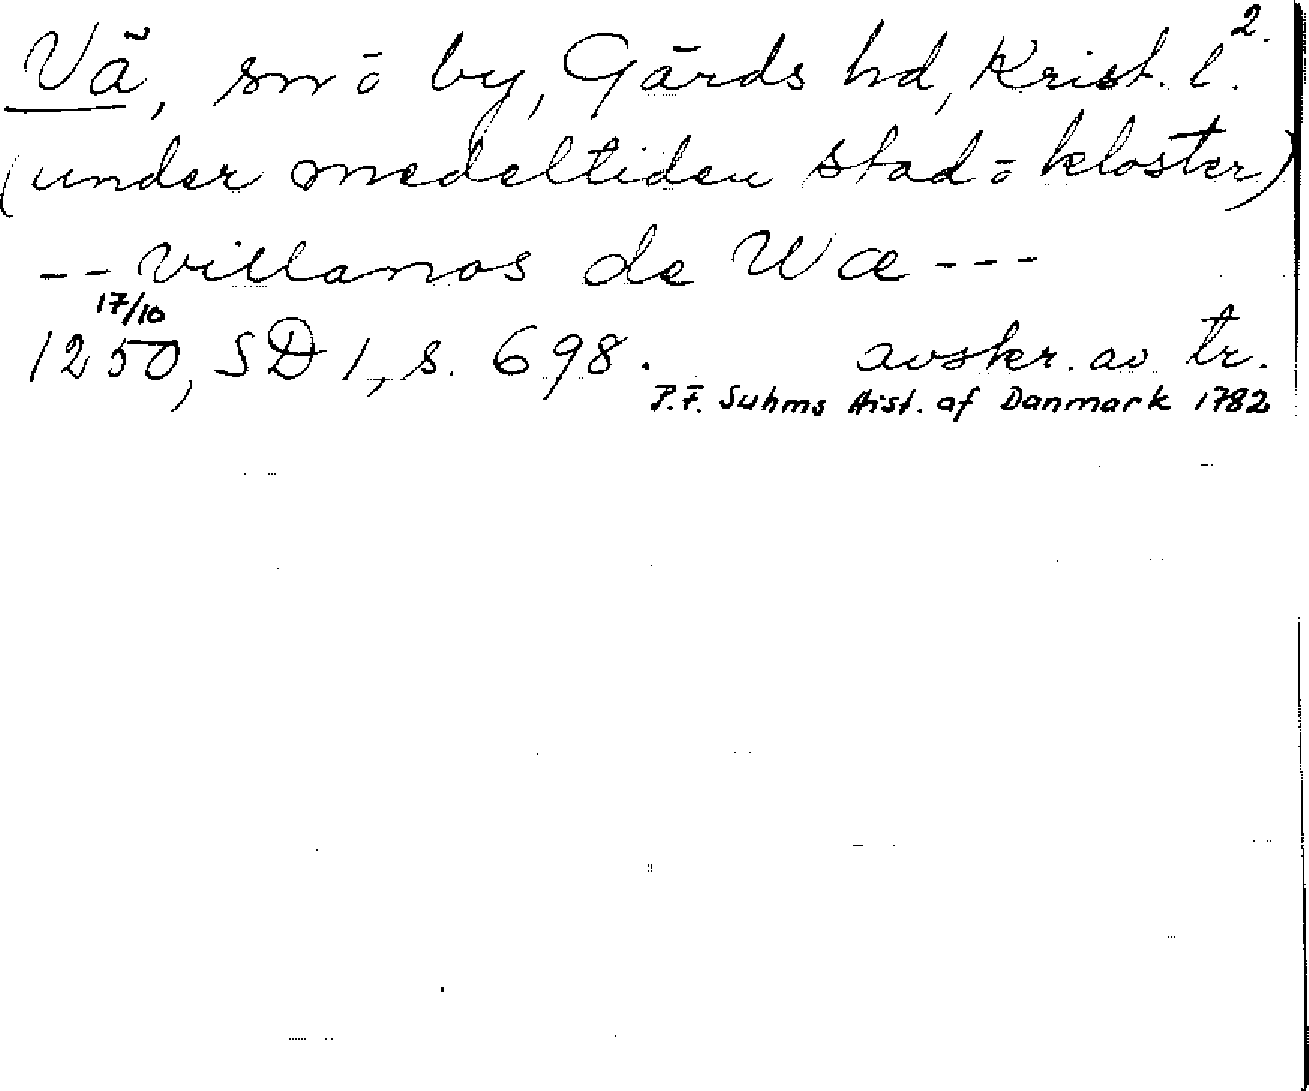 2.
Vã, sn ō by, Gārds hd, Krist. l.
(under medeltiden stad ō kloster)
-- villanos de Wæ ---
17/10
1250, SD 1, s. 698. avskr. av tr.
P.F. Suhms Hist. af Danmark 1782